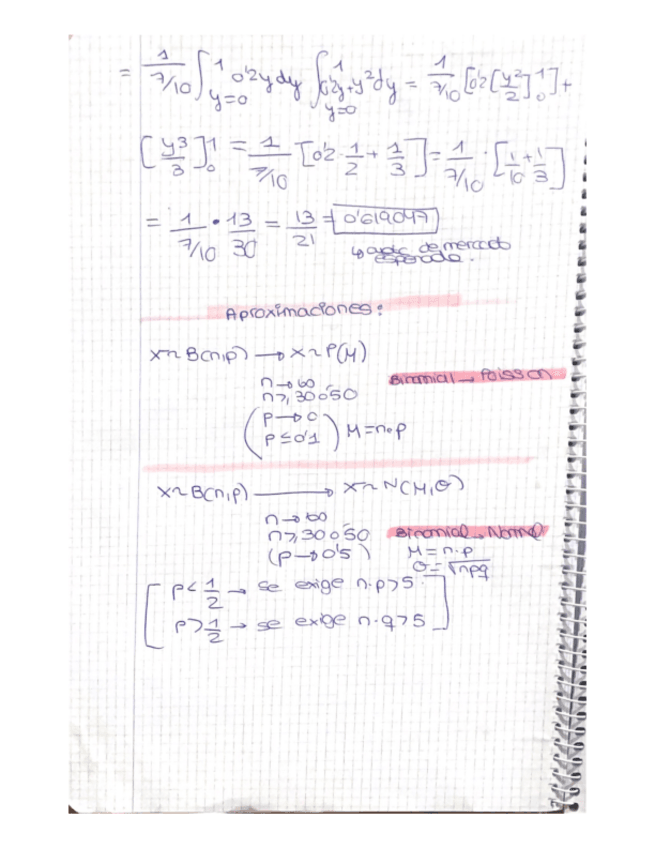 = 1/(7/10) ∫_{y=0}^{1} 0'2y dy ∫_{y=0}^{1} 0'2y+y² dy = 1/(7/10) [0'2[y²/2]₀¹] +
[y³/3]₀¹ = 1/(7/10) [0'2 · 1/2 + 1/3] = 1/(7/10) · [1/10 + 1/3]
= 1/(7/10) · 13/30 = 13/21 = 0'619047
↳ de mercado
esperada.
Aproximaciones:
X~B(n,p) → X~P(M)
n→∞
n≥30 ó 50
Binomial → Poisson
(p→0
p≤0'1) M=n·p
X~B(n,p) → X~N(M,σ)
n→∞
n≥30 ó 50
Binomial → Normal
(p→0'5)
M=n·p
σ=√npq
[p<1/2 → se exige n·p>5
p>1/2 → se exige n·q>5]